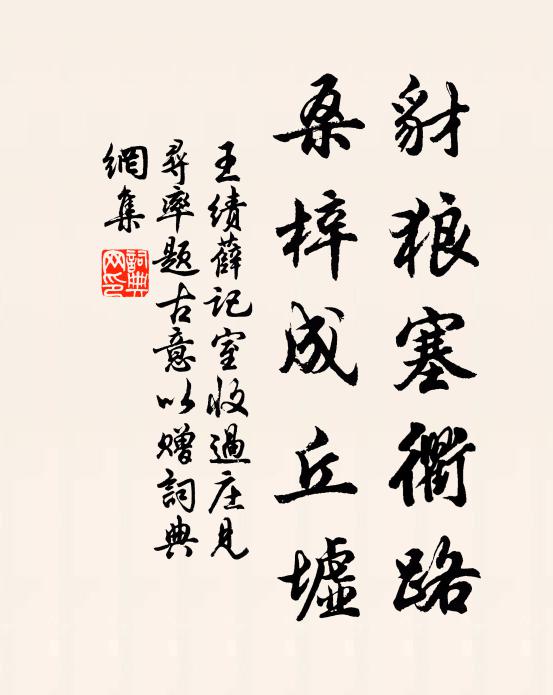 豺狼塞衢路
桑梓成丘墟
王绩薛记室收過庄見
尋率题古意以赠詞典
網集
詞典网印